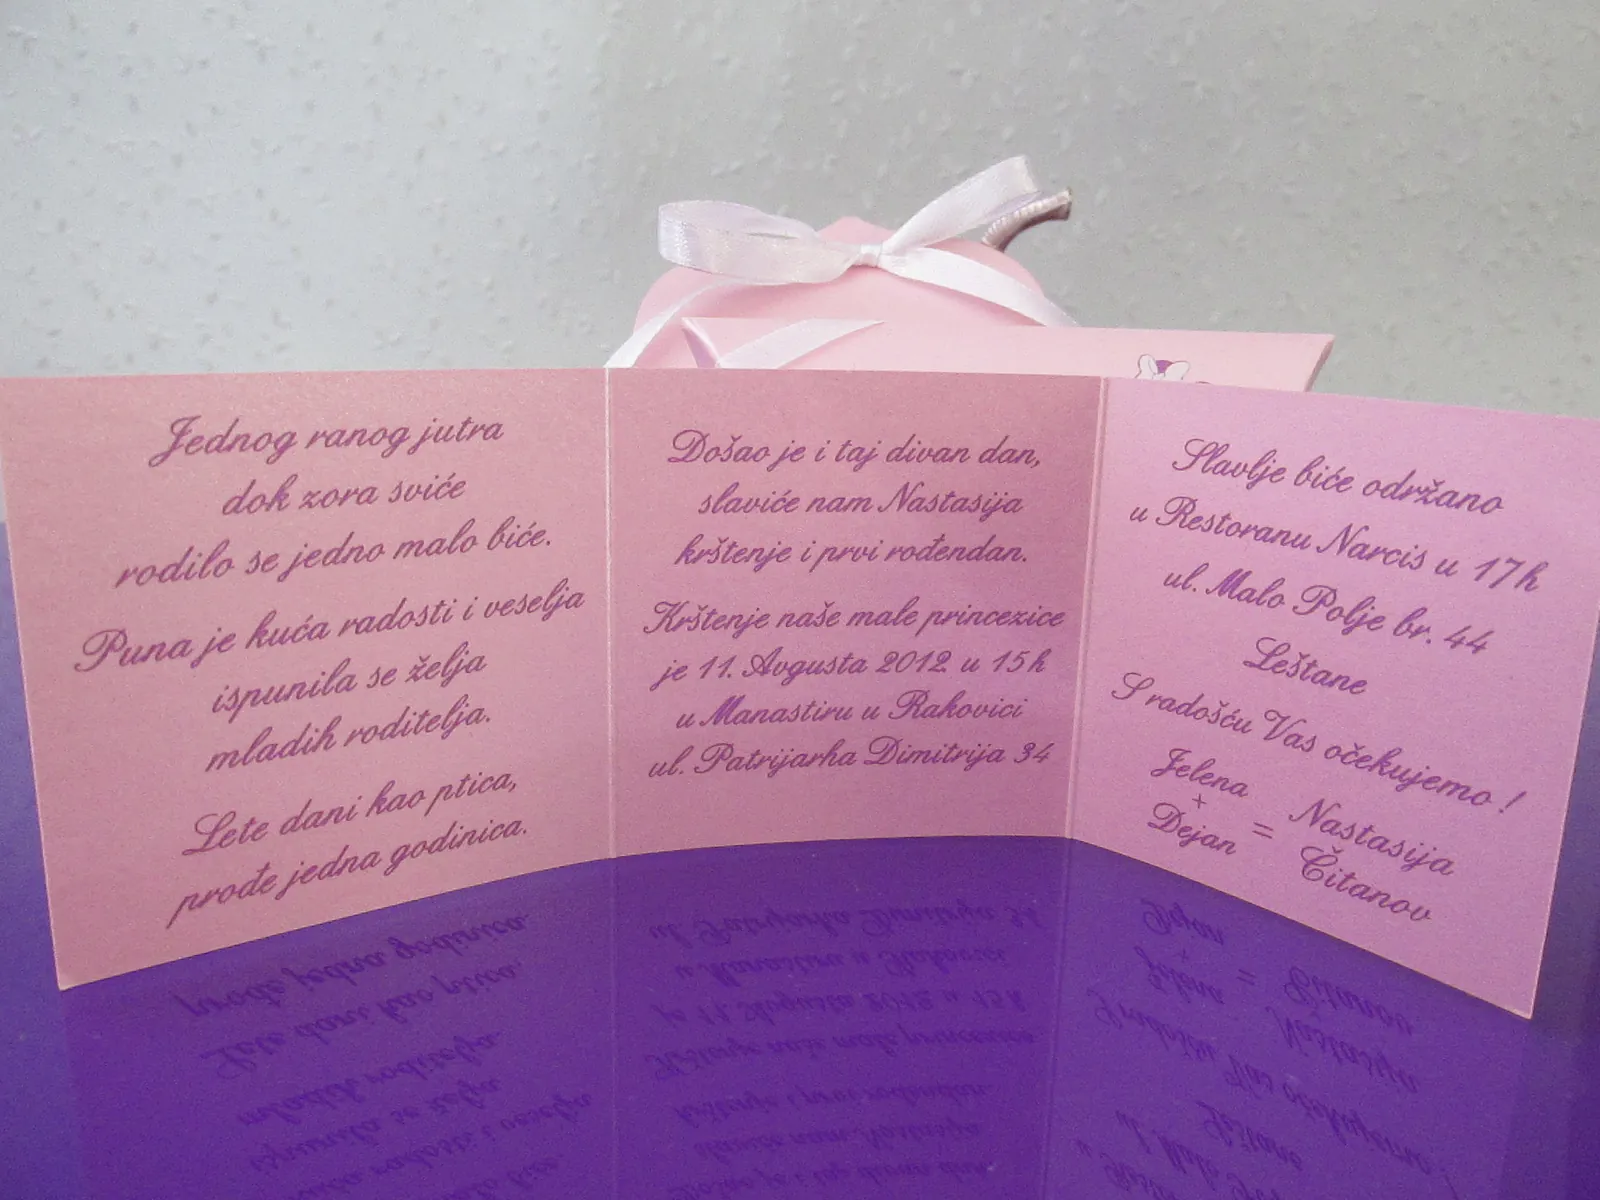 Jednog ranog jutra
dok zora sviće
rodilo se jedno malo biće.
Puna je kuća radosti i veselja
ispunila se želja
mladih roditelja.
Lete dani kao ptica,
prođe jedna godinica.
Došao je i taj divan dan,
slaviće nam Nastasija
krštenje i prvi rođendan.
Krštenje naše male princezice
je 11. Avgusta 2012. u 15h
u Manastiru u Rakovici
ul. Patrijarha Dimitrija 34
Slavlje biće održano
u Restoranu Narcis u 17h
ul. Malo Polje br. 44
Leštane
S radošću Vas očekujemo !
Jelena
+
Dejan
=
Nastasija
Čitanov